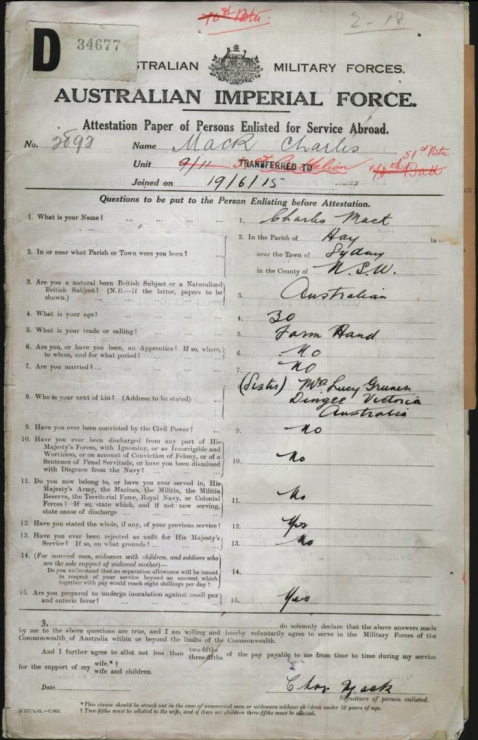 10th Btn.
2-18
D 34677
AUSTRALIAN MILITARY FORCES.
AUSTRALIAN IMPERIAL FORCE.
Attestation Paper of Persons Enlisted for Service Abroad.
No. 2892 Name Mack Charles
Unit 9/11 TRANSFERRED TO 51st Btn
Joined on 19/6/15
Questions to be put to the Person Enlisting before Attestation.
1. What is your Name? ... ... ... ... 1. Charles Mack
2. In or near what Parish or Town were you born? ... 2. In the Parish of Hay in
near the Town of Sydny
in the County of N.S.W.
3. Are you a natural born British Subject or a Naturalized
British Subject? (N.B.—If the latter, papers to be
shown.) ... ... ... ... 3. Australian
4. What is your age? ... ... ... ... 4. 30
5. What is your trade or calling? ... ... ... 5. Farm Hand
6. Are you, or have you been, an Apprentice? If so, where,
to whom, and for what period? ... ... 6. No
7. Are you married? ... ... ... ... 7. No
8. Who is your next of kin? (Address to be stated) ... 8. (Sister) Mrs Lucy
Dingee Victoria
Australia
9. Have you ever been convicted by the Civil Power? ... 9. No
10. Have you ever been discharged from any part of His
Majesty's Forces, with Ignominy, or as Incorrigible and
Worthless, or on account of Conviction of Felony, or of a
Sentence of Penal Servitude, or have you been dismissed
with Disgrace from the Navy? ... ... 10. No
11. Do you now belong to, or have you ever served in, His
Majesty's Army, the Marines, the Militia, the Militia
Reserve, the Territorial Force, Royal Navy, or Colonial
Forces? If so, state which, and if not now serving,
state cause of discharge ... ... 11. No
12. Have you stated the whole, if any, of your previous service? 12. Yes
13. Have you ever been rejected as unfit for His Majesty's
Service? If so, on what grounds? ... ... 13. No
14. (For married men, widowers with children, and soldiers who
are the sole support of widowed mother)—
Do you understand that no separation allowance will be issued
in respect of your service beyond an amount which
together with pay would reach eight shillings per day? 14.
15. Are you prepared to undergo inoculation against small pox
and enteric fever? ... ... ... 15. Yes
I, do solemnly declare that the above answers made
by me to the above questions are true, and I am willing and hereby voluntarily agree to serve in the Military Forces of the
Commonwealth of Australia within or beyond the limits of the Commonwealth.
And I further agree to allot not less than two-fifths three-fifths of the pay payable to me from time to time during my service
for the support of my wife.*†
wife and children.
Date Chas Mack
Signature of person enlisted.
*This clause should be struck out in the case of unmarried men or widowers without children under 18 years of age.
†Two-fifths must be allotted to the wife, and if there are children three-fifths must be allotted.